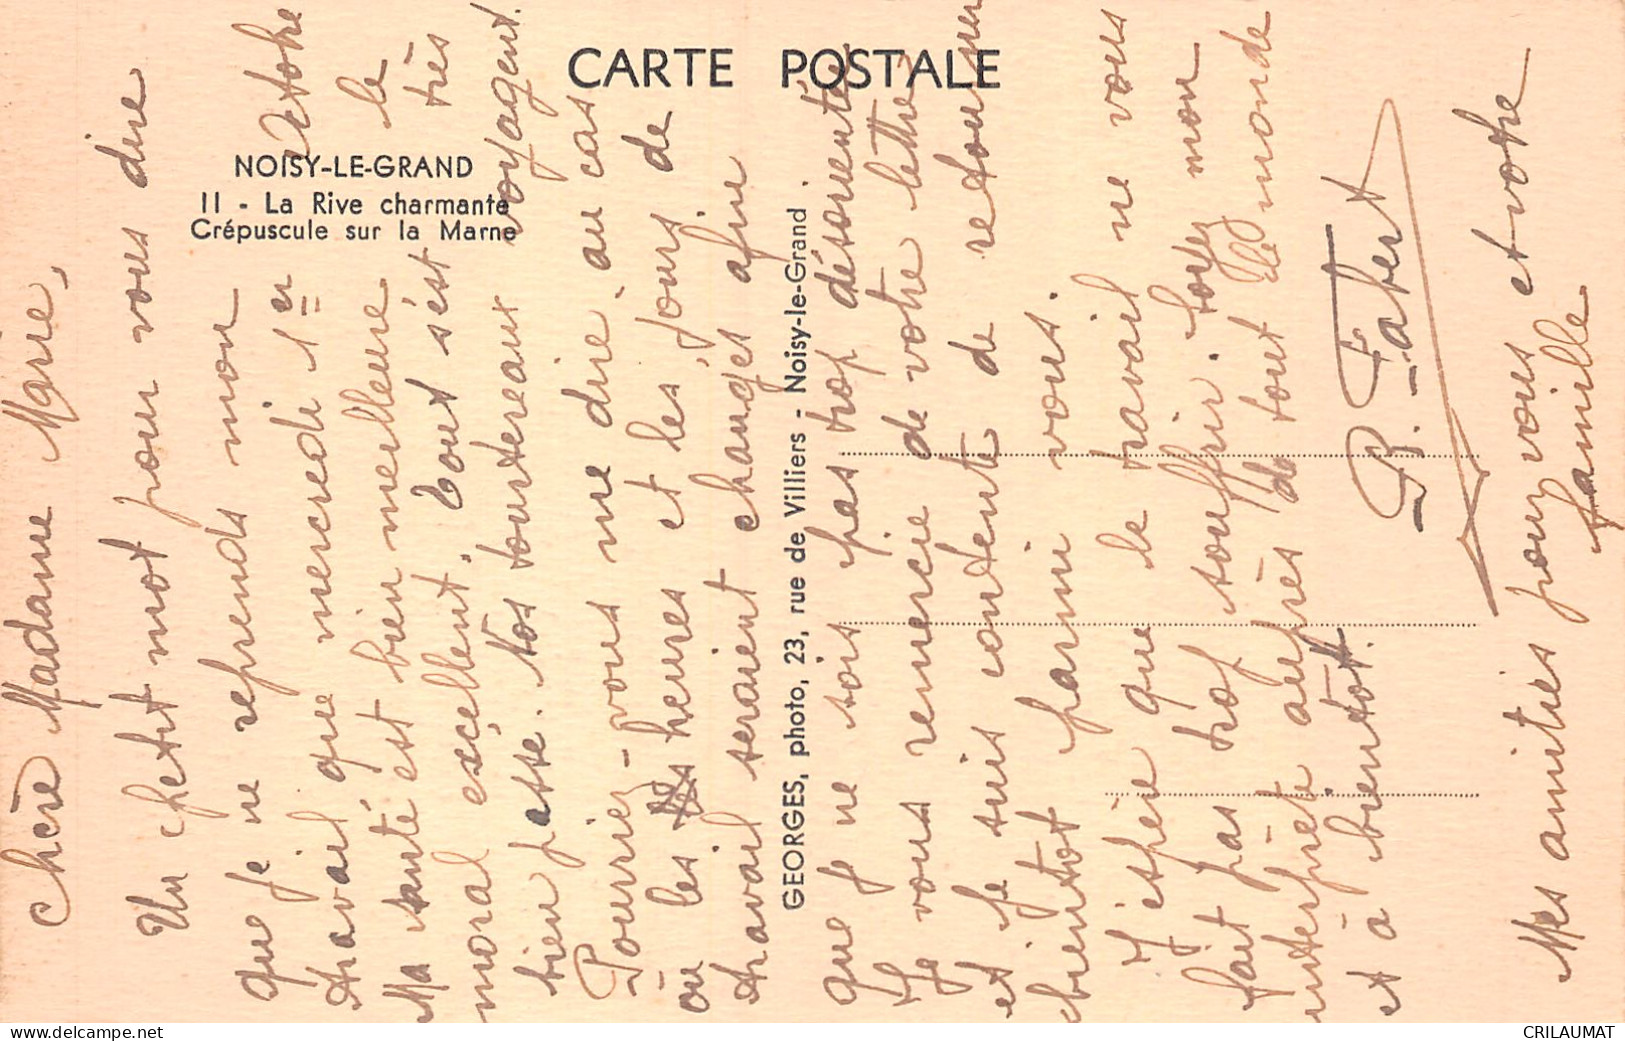 CARTE POSTALE
NOISY-LE-GRAND
11 - La Rive charmante
Crépuscule sur la Marne
GEORGES, photo, 23, rue de Villiers - Noisy-le-Grand
Chère Madame Marie,
Un petit mot pour vous dire
que je ne reprends mon
travail que mercredi 1er octobre
Ma santé est bien meilleure le
moral excellent. Tout s'est très
bien passé. Nos tourtereaux voyagent.
Pourriez-vous me dire, au cas
où les heures et les jours de
travail seraient changés afin
que je ne sois pas trop désorientée
Je vous remercie de votre lettre
et je suis contente de retourner
bientot parmi vous.
J'espère que le travail ne vous
fait pas trop souffrir. Soyez mon
interprète auprès de tout le monde
et à bientot.
B. Fabert
Mes amitiés pour vous et votre
famille
www.delcampe.net
CRILAUMAT